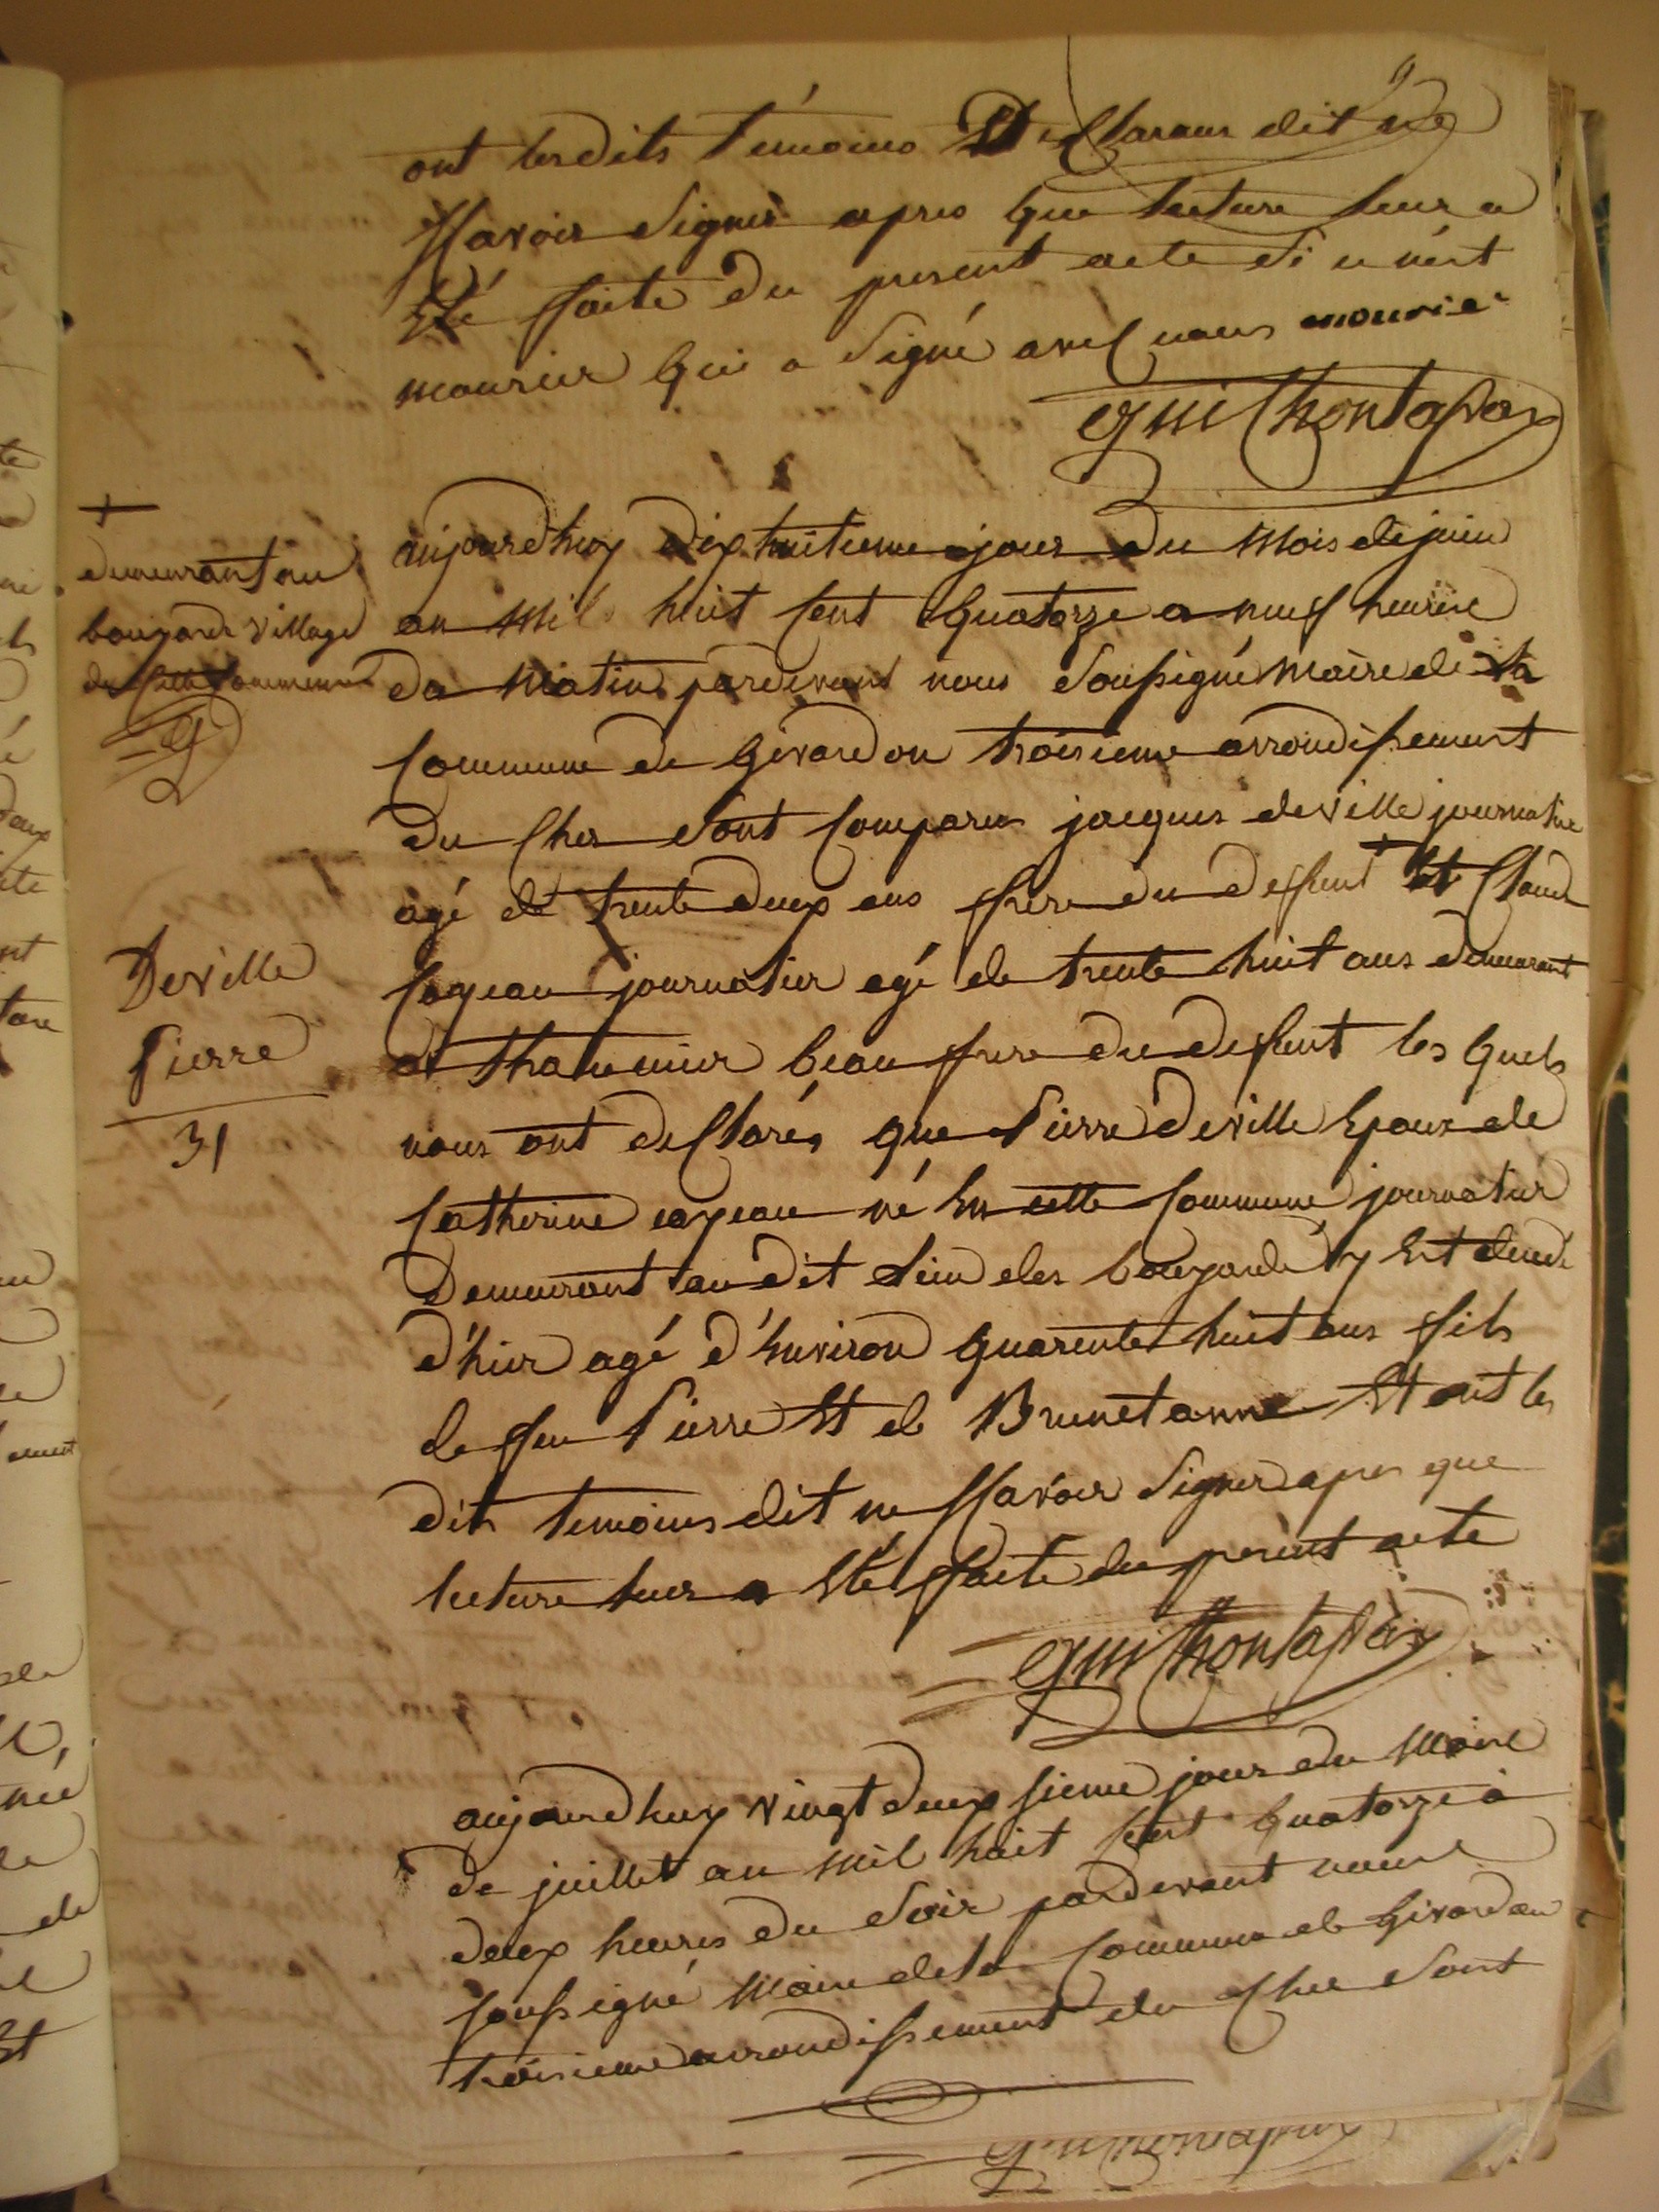 ont lesdits témoins declarans dit ne
sçavoir signer apres que lecture leur a
Eté faite du present acte si ce n'est
mourier qui a signé avec nous mourier
guilhontapax
+
demeurant au
bougards village
de cette commune
aujourdhuy dix huitieme jour du mois de juin
an mil huit cent quatorze a neuf heures
da matin pardevant nous soussigné maire de la
commune de Givardon troisieme arrondissement
du Cher sont comparus jacques deville journalier
agé de trente deux ans frere du defunt + Et Claude
Deville
Pierre
31
cageau journalier agé de trente huit ans demeurant
a thaumier beau frere du defunt les quels
nous ont desclarés que Pierre deville Epoux de
catherine cageau né En cette commune journalier
Demeurant au dit lieu des bougards y Est decedé
d'hier agé d'Environ quarente huit ans fils
de feu Pierre Et de Brunet anne Et ont les
dits temoins dit ne sçavoir signer apres que
lecture leur a Eté faite du present acte
guilhontapax
aujourdhuy vingt deuxsieme jour du mois
de juillet an mil huit cent quatorze à
deux heures du soir pardevant nous
soussigné maire de la commune de Givardon
troisieme arrondissement du Cher sont